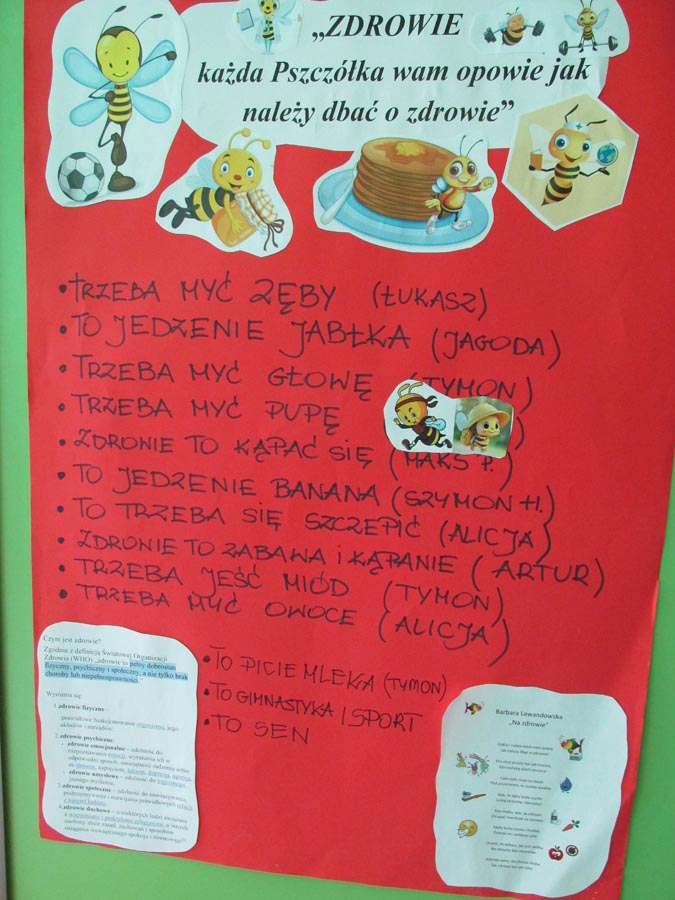 „ZDROWIE
każda Pszczółka wam opowie jak
należy dbać o zdrowie”
• TRZEBA MYĆ ZĘBY (ŁUKASZ)
• TO JEDZENIE JABŁKA (JAGODA)
• TRZEBA MYĆ GŁOWĘ (TYMON)
• TRZEBA MYĆ PUPĘ )
• ZDROWIE TO KĄPAĆ SIĘ (MAKS P.)
• TO JEDZENIE BANANA (SZYMON H.)
• TO TRZEBA SIĘ SZCZEPIĆ (ALICJA)
• ZDROWIE TO ZABAWA I KĄPANIE (ARTUR)
• TRZEBA JEŚĆ MIÓD (TYMON)
• TRZEBA MYĆ OWOCE (ALICJA)
• TO PICIE MLEKA (TYMON)
• TO GIMNASTYKA I SPORT
• TO SEN
Czym jest zdrowie?
Zgodnie z definicją Światowej Organizacji
Zdrowia (WHO) „zdrowie to pełny dobrostan
fizyczny, psychiczny i społeczny, a nie tylko brak
choroby lub niepełnosprawności.”
Wyróżnia się:
1.zdrowie fizyczne –
prawidłowe funkcjonowanie organizmu, jego
układów i narządów;
2.zdrowie psychiczne:
- zdrowie emocjonalne – zdolność do
rozpoznawania emocji, wyrażania ich w
odpowiedni sposób, umiejętność radzenia sobie
ze stresem, napięciem, lękiem, depresją, agresją
- zdrowie umysłowe – zdolność do logicznego,
jasnego myślenia;
3.zdrowie społeczne – zdolność do nawiązywania,
podtrzymywania i rozwijania prawidłowych relacji
z innymi ludźmi
4.zdrowie duchowe – u niektórych ludzi związane
z wierzeniami i praktykami religijnymi, u innych
osobisty zbiór zasad, zachowań i sposobów
osiągania wewnętrznego spokoju i równowagi
Barbara Lewandowska
„Na zdrowie”